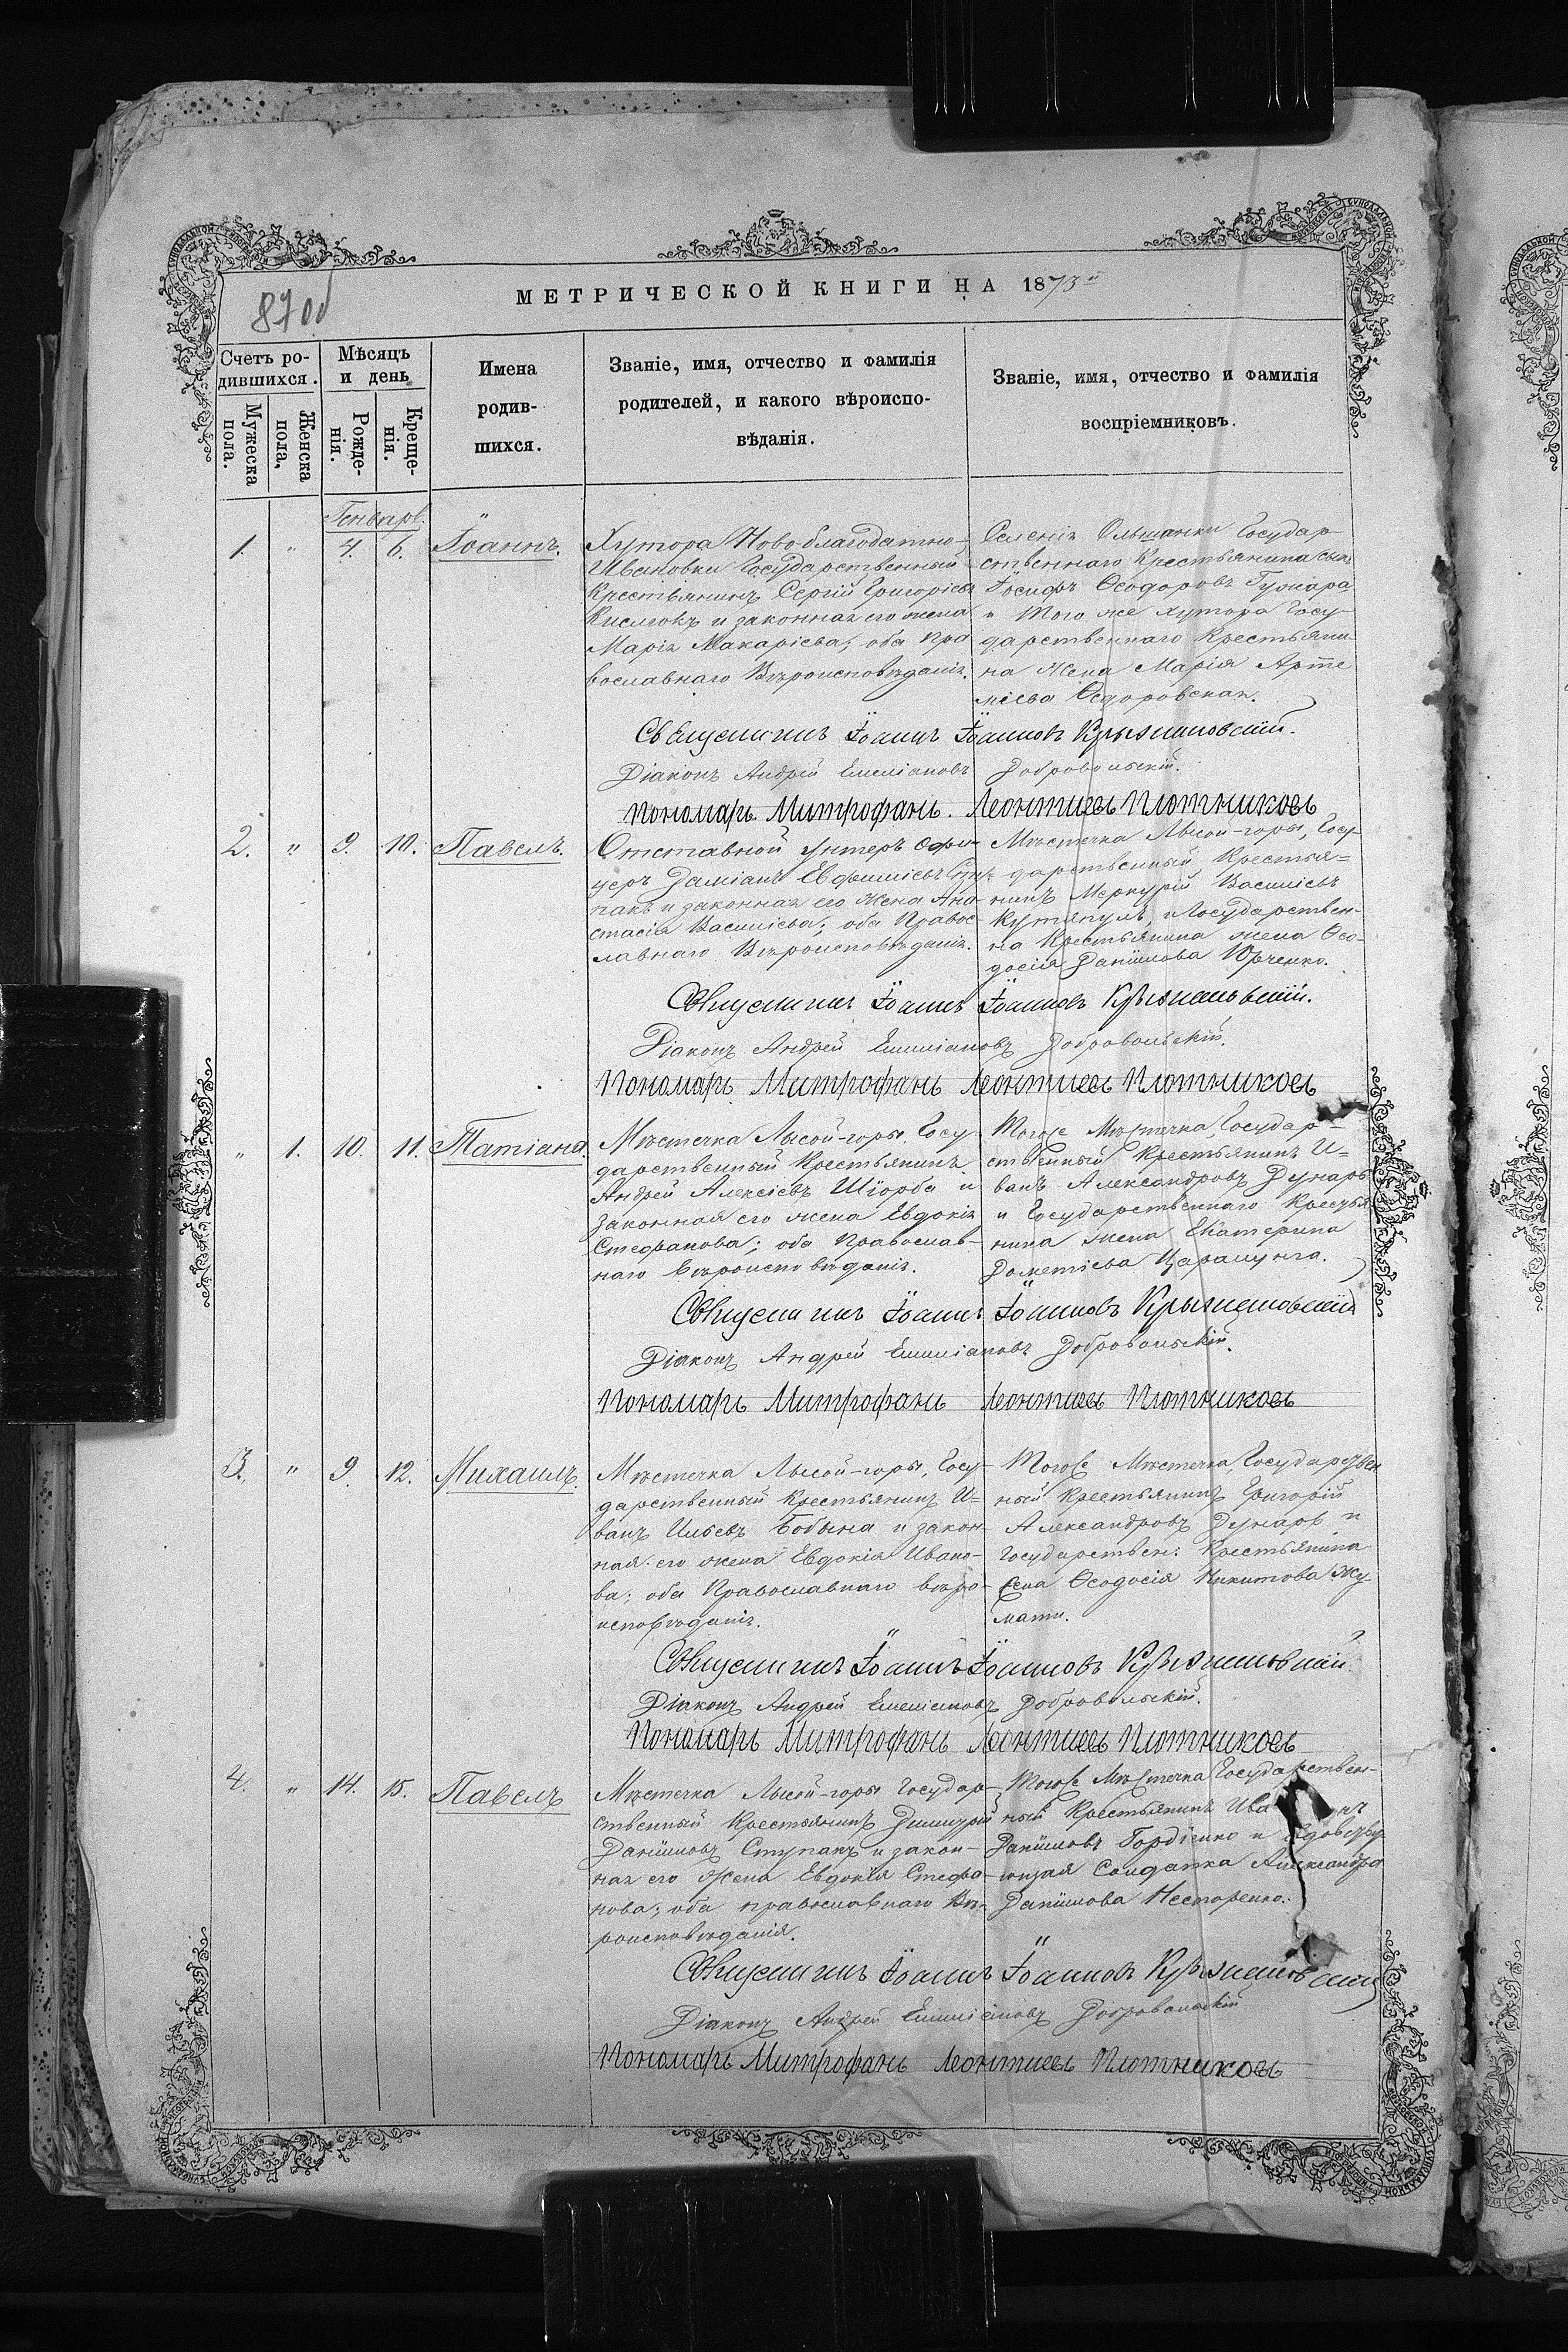 870 об
МЕТРИЧЕСКОЙ КНИГИ НА 1873 й
Счетъ ро-
дившихся.
Мужеска
пола.
Женска
пола,
Мѣсяцъ
и день
Рожде-
нія.
Креще-
нія.
Имена
родив-
шихся.
Званіе, имя, отчество и фамилія
родителей, и какого вѣроиспо-
вѣданія.
Званіе, имя, отчество и фамилія
воспріемниковъ.
Генварь.
1. " 4. 6. Іоаннъ.
Хутора Ново-благодатно-
Ивановки Государственный
Крестьянинъ Сергій Григоріевъ
и законная его жена
Марія Макаріева; оба Пра
вославнаго Вѣроисповѣданія.
Селенія Ольшанки Государ
ственнаго Крестьянина сынъ
Іосифъ Ѳеодоровъ
и Того же хутора Госу
дарственнаго Крестьяни
на Жена Марія Арте
міева Ѳедоровская.
Священникъ Іоаннъ Іоанновъ Крыжановскій.
Діаконъ Андрей Емеліановъ Добровольскій.
Пономарь Митрофанъ Леонтиевъ Плотниковъ
2. " 9. 10. Павелъ.
Отставной Унтеръ Офи
церъ Даміанъ Евфиміевъ Сту
пакъ и законная его Жена Ана
стасія Василіева; оба Правос-
лавнаго Вѣроисповѣданія.
Мѣстечка Лысой-горы, Госу-
дарственный Крестья=
нинъ Меркурій Василіевъ
и Государствен-
на Крестьянина жена Ѳео-
досія Даніилова Юрченко.
Священникъ Іоаннъ Іоанновъ Крыжановскій.
Діаконъ Андрей Емеліановъ Добровольскій.
Пономарь Митрофанъ Леонтиевъ Плотниковъ
" 1. 10. 11. Татіана.
Мѣстечка Лысой-горы, Госу
дарственный Крестьянинъ
Андрей Алексіевъ и
законная его жена Евдокія
Стефанова; оба Православ-
наго Вѣроисповѣданія.
Тогоже Мѣстечка, Государ-
ственный Крестьянинъ И=
ванъ Александровъ Дунаръ
и Государственнаго Крестья
нина жена Екатерина
Дометіева
Священникъ Іоаннъ Іоанновъ Крыжановскій
Діаконъ Андрей Емеліановъ Добровольскій.
Пономарь Митрофанъ Леонтиевъ Плотниковъ
3. " 9. 12. Михаилъ.
Мѣстечка Лысой-горы, Госу-
дарственный Крестьянинъ И=
ванъ Ильевъ Бобына и закон-
ная его жена Евдокія Ивано-
ва; оба Православнаго вѣро-
исповѣданія.
Тогоже Мѣстечка, Государствен
ный Крестьянинъ Григорій
Александровъ Дунаръ и
Государствен: Крестьянина
Жена Ѳеодосія Никитова Жу-
мати.
Священникъ Іоаннъ Іоанновъ Крыжановскій.
Діаконъ Андрей Емеліановъ Добровольскій.
Пономарь Митрофанъ Леонтиевъ Плотниковъ
4. " 14. 15. Павелъ
Мѣстечка Лысой-горы Государ-
ственный Крестьянинъ Димитрій
Даніиловъ Ступакъ и закон-
ная его Жена Евдокія Стефа-
нова; оба православнаго Вѣ-
роисповѣданія.
Тогоже Мѣстечка Государствен-
ный Крестьянинъ
Даніиловъ Гордіенко и вдовству-
ющая Солдатка Александра
Даніилова Несторенко.
Священникъ Іоаннъ Іоанновъ Крыжановскій
Діаконъ Андрей Емеліановъ Добровольскій
Пономарь Митрофанъ Леонтиевъ Плотниковъ